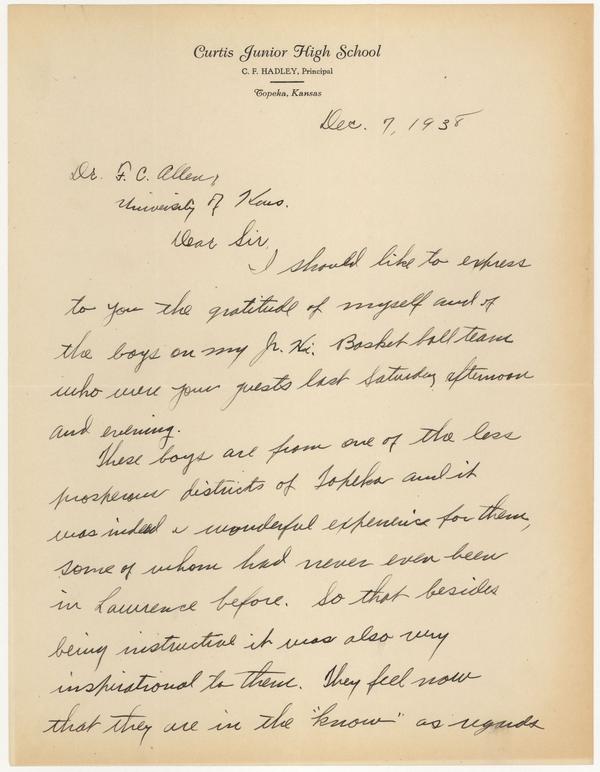 Curtis Junior High School
C. F. HADLEY, Principal
Topeka, Kansas
Dec. 7, 1938
Dr. F. C. Allen,
University of Kans.
Dear Sir,
I should like to express
to you the gratitude of myself and of
the boys on my Jr. Hi. Basket ball team
who were your guests last Saturday afternoon
and evening.
These boys are from one of the less
prosperous districts of Topeka and it
was indeed a wonderful experience for them,
some of whom had never even been
in Lawrence before. So that besides
being instructive it was also very
inspirational to them. They feel now
that they are in the "know" as regards